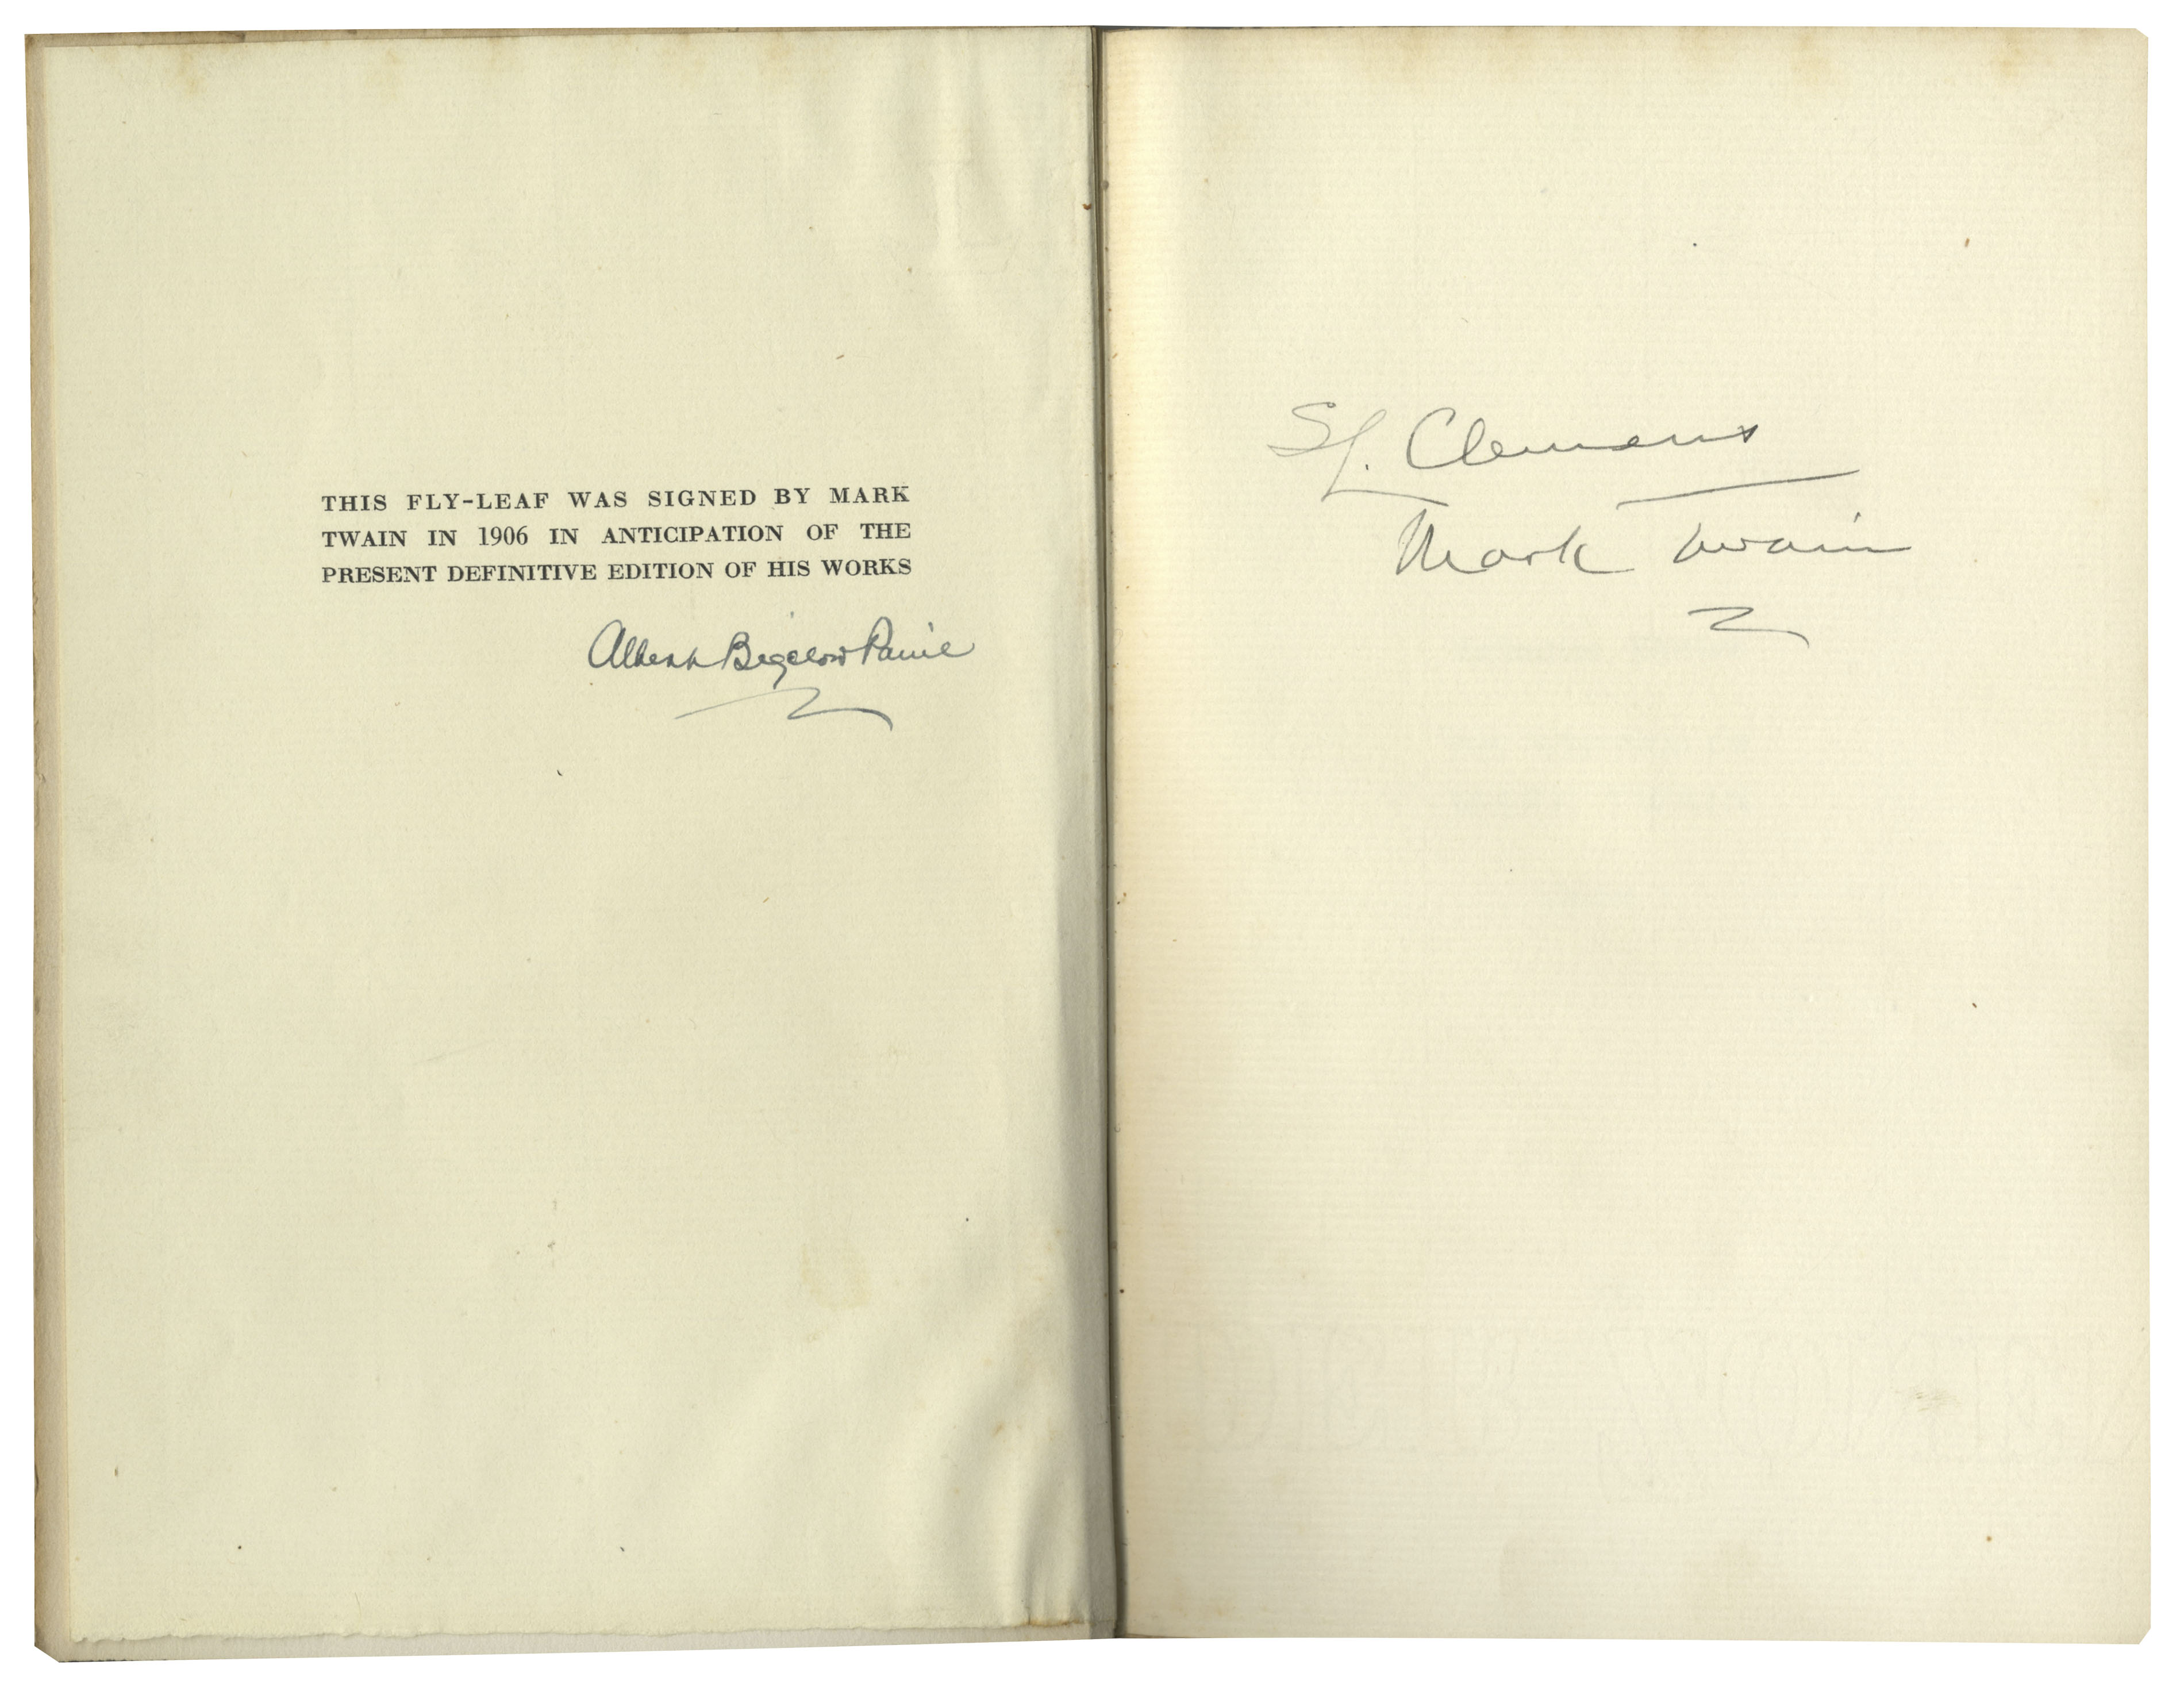 THIS FLY-LEAF WAS SIGNED BY MARK
TWAIN IN 1906 IN ANTICIPATION OF THE
PRESENT DEFINITIVE EDITION OF HIS WORKS
Albert Bigelow Paine
SL. Clemens
Mark Twain